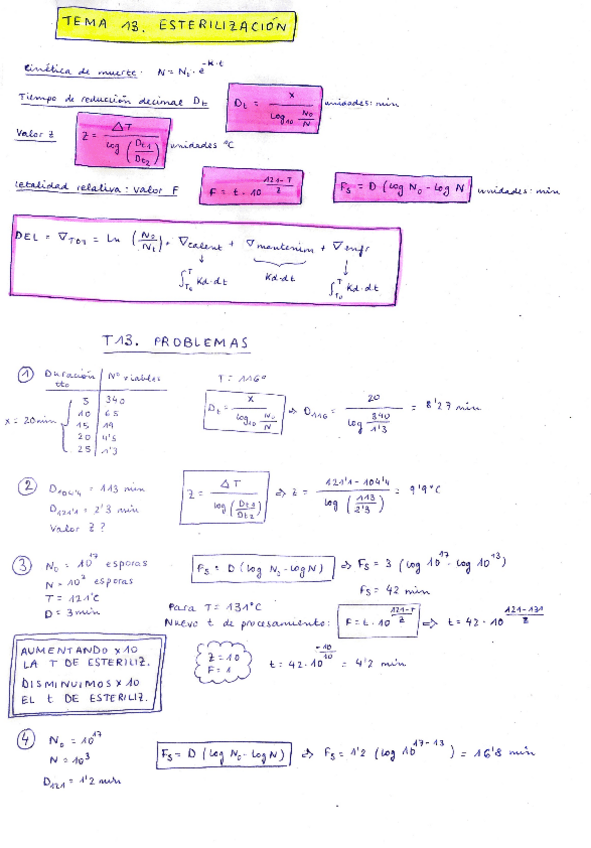 TEMA 13. ESTERILIZACIÓN
Cinética de muerte: N = N₀ · e^-k·t
Tiempo de reducción decimal Dt  Dt = x / log₁₀ N₀/N  unidades: min
Valor Z  Z = ΔT / log (Dt1/Dt2)  unidades °C
Letalidad relativa: valor F  F = t · 10^(121-T/Z)  Fs = D (log N₀ - log N)  unidades: min
DEL = ∇TOT = Ln (N₀/Nt) = ∇calent + ∇mantenim + ∇enfr
∫T₀^T Kd·dt  Kd·dt  ∫T₀^T Kd·dt
T13. PROBLEMAS
① Duración tto | Nº viables  T = 116°
x = 20 min
5 | 340
10 | 65
15 | 19
20 | 4'5
25 | 1'3
Dt = x / log₁₀ N₀/N ⇒ D116 = 20 / log 340/1'3 = 8'27 min
② D104'4 = 113 min
D121'1 = 2'3 min
Valor Z ?
Z = ΔT / log (Dt1/Dt2) ⇒ Z = 121'1 - 104'4 / log (113/2'3) = 9'9 °C
③ N₀ = 10^17 esporas
N = 10^3 esporas
T = 121°C
D = 3 min
Fs = D (log N₀ - log N) ⇒ Fs = 3 (log 10^17 - log 10^13)
Fs = 42 min
Para T = 131°C
Nuevo t de procesamiento: F = t · 10^(121-T/Z) ⇒ t = 42 · 10^(121-131/Z)
Z = 10
F = 1
t = 42 · 10^(-10/10) = 4'2 min
AUMENTANDO x10
LA T DE ESTERILIZ.
DISMINUIMOS x10
EL t DE ESTERILIZ.
④ N₀ = 10^17
N = 10^3
D121 = 1'2 min
Fs = D (log N₀ - log N) ⇒ Fs = 1'2 (log 10^17-13) = 16'8 min